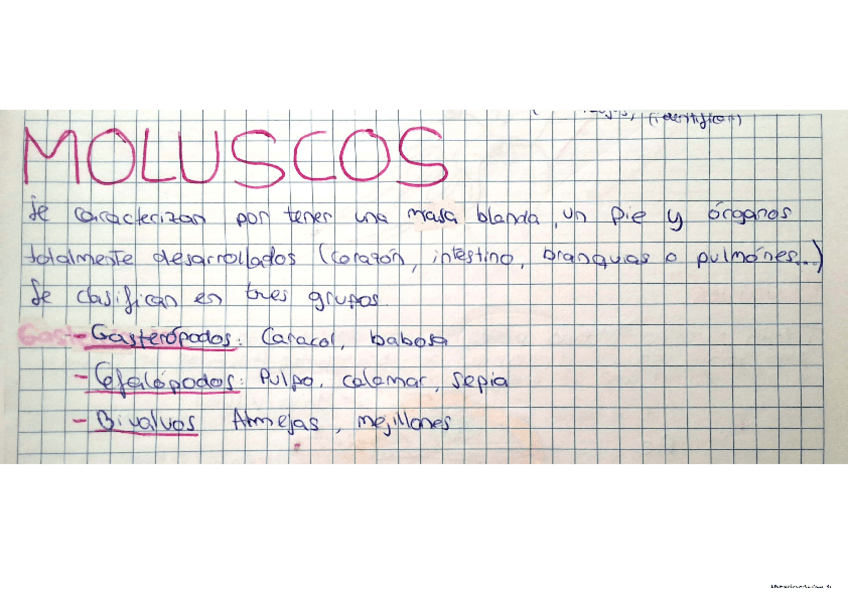 MOLUSCOS
Se caracterizan por tener una masa blanda, un pie y órganos
totalmente desarrollados (corazón, intestino, branquias o pulmónes...)
Se clasifican en tres grupos
- Gasterópodos: Caracol, babosa
- Cefalópodos: Pulpo, calamar, sepia
- Bivalvos Almejas, mejillones